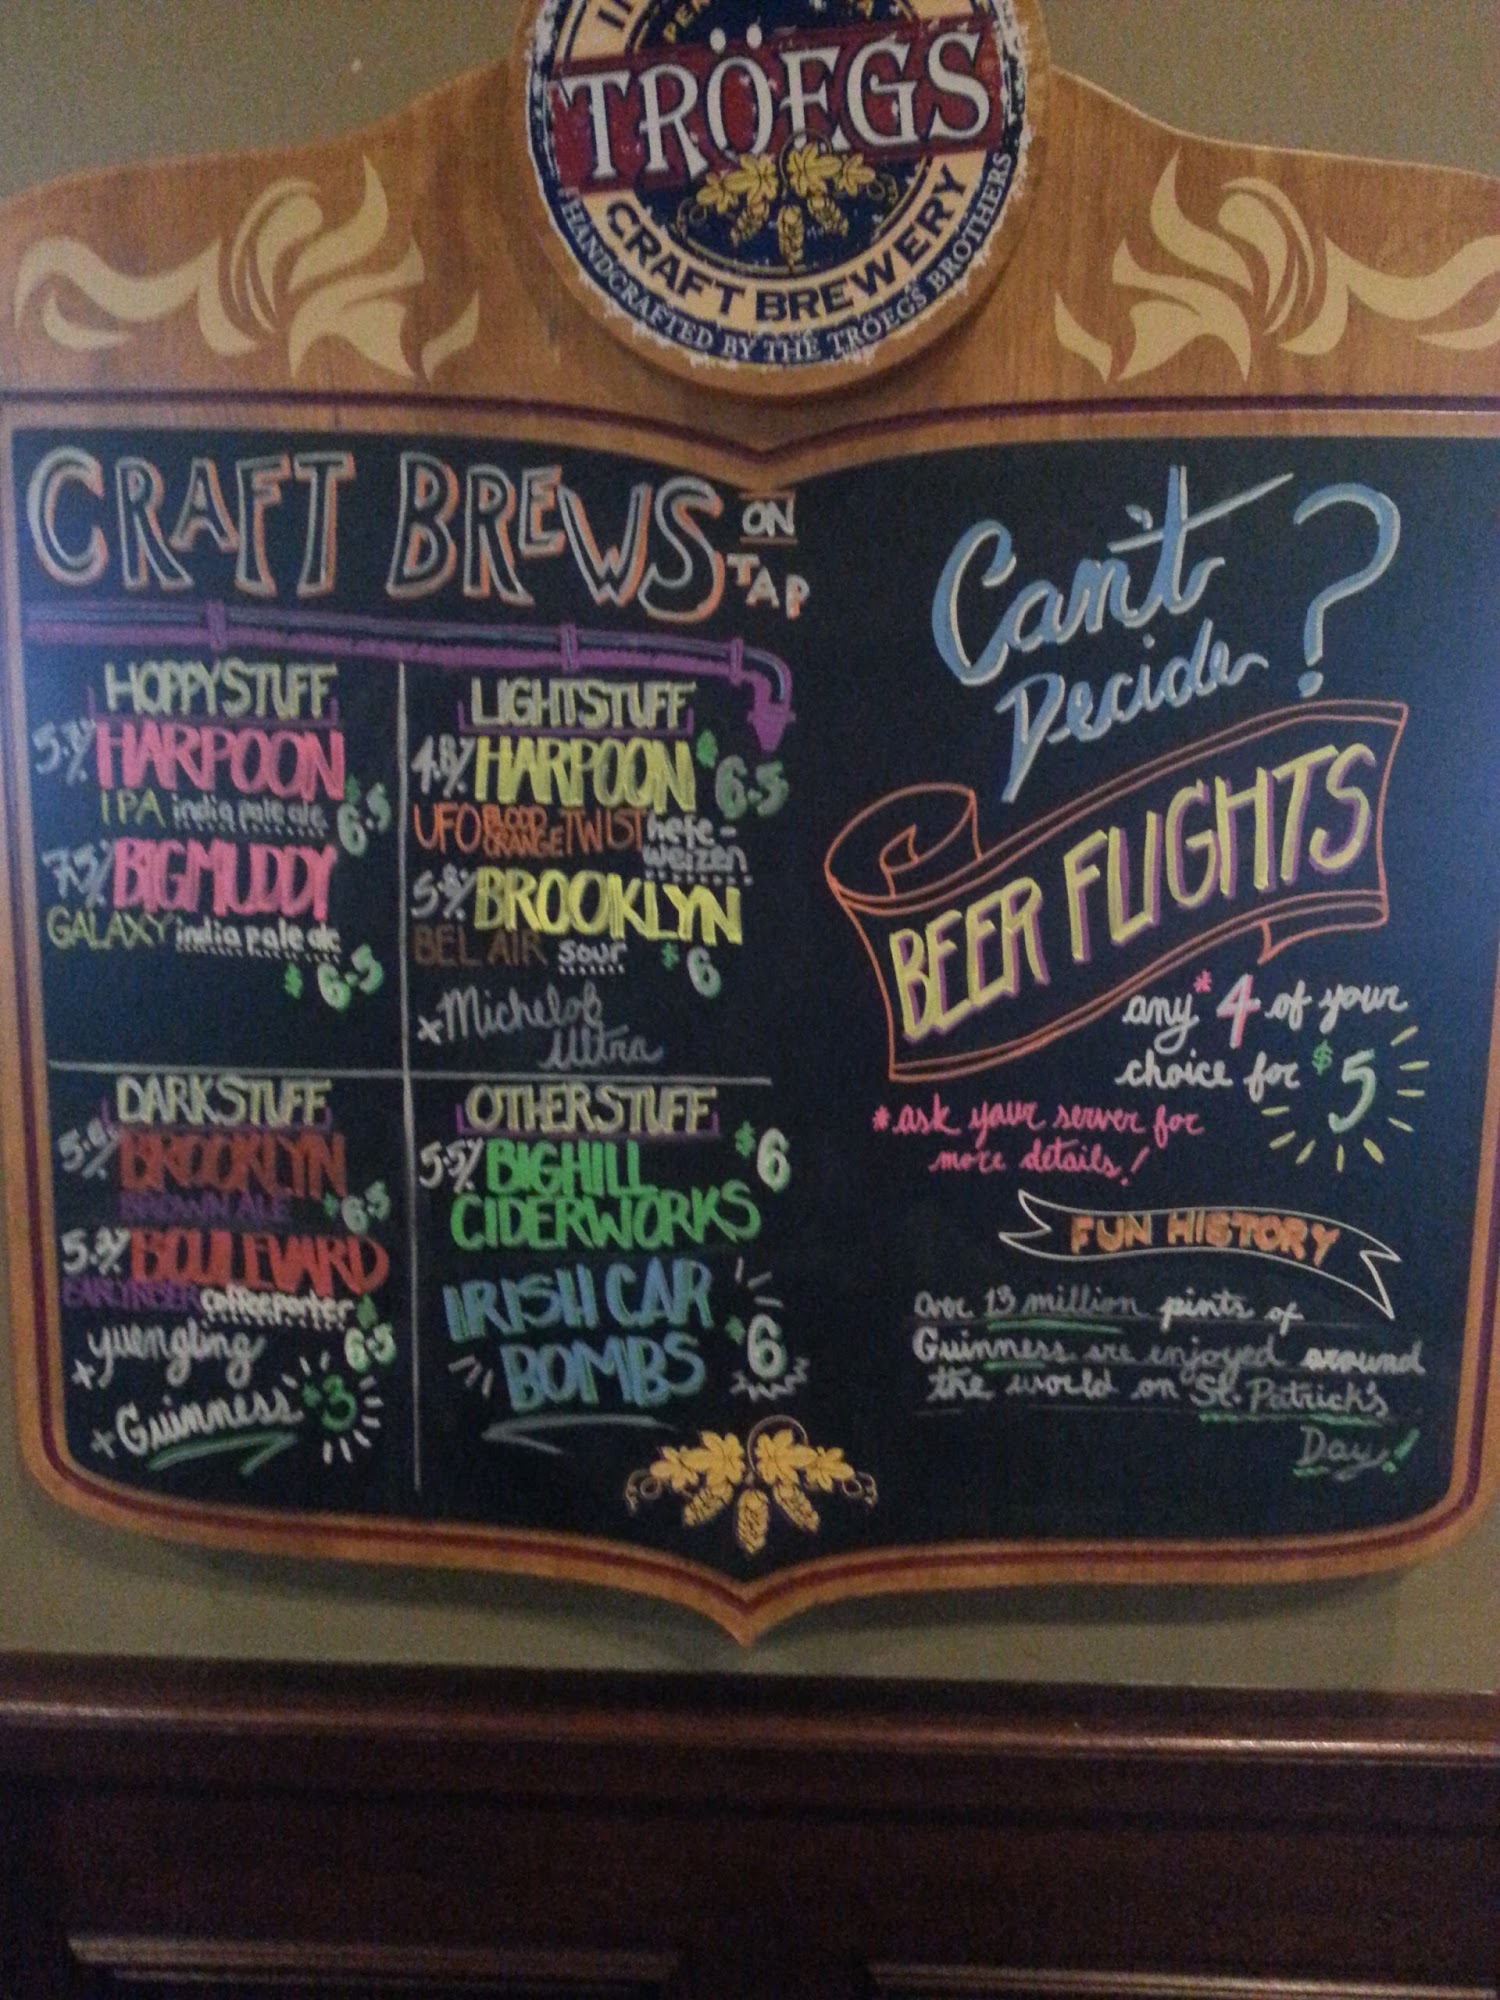 TRÖEGS
CRAFT BREWERY
HANDCRAFTED BY THE TRÖEGS BROTHERS
CRAFT BREWS ON TAP
HOPPY STUFF
HARPOON
IPA india pale ale 6.5
BIG MUDDY
GALAXY india pale ale
$6.5
LIGHT STUFF
4.8% HARPOON $6.5
UFO BLOOD ORANGE TWIST hefe-
weizen
5.8% BROOKLYN
BEL AIR sour $6
+Michelob
Ultra
DARK STUFF
BROOKLYN
BROWN ALE $6.5
BOULEVARD
EARLY RISER coffee porter $
6.5
+yuengling
+Guinness $3
OTHER STUFF
5.5% BIG HILL $6
CIDERWORKS
IRISH CAR
BOMBS $6
Can't
Decide?
BEER FLIGHTS
any* 4 of your
choice for $5
*ask your server for
more details!
FUN HISTORY
Over 13 million pints of
Guinness are enjoyed around
the world on St. Patrick's
Day!